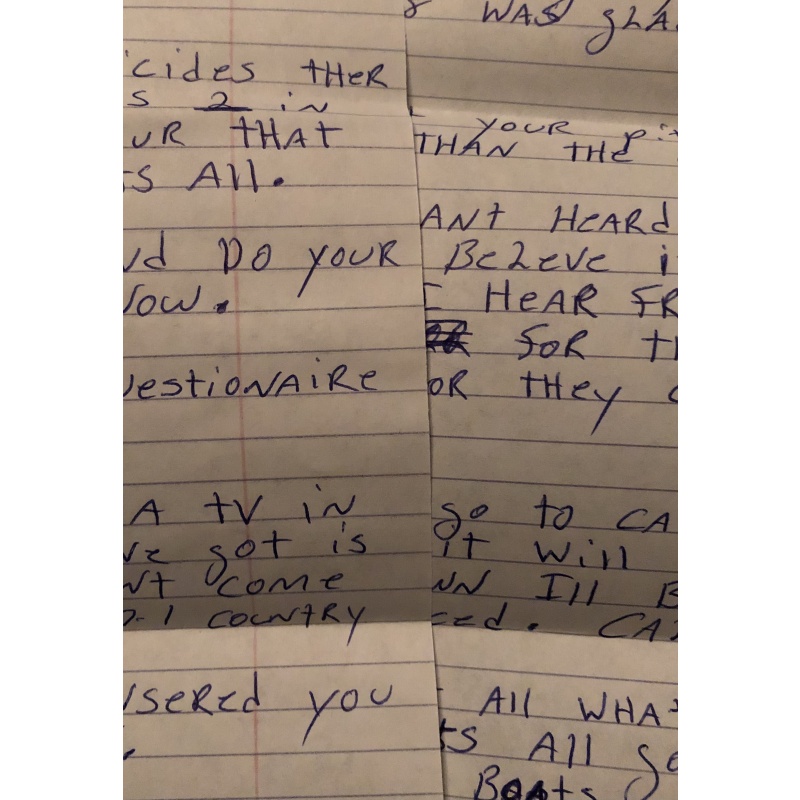 cides tHeR
s 2 in
uR tHAt
ts All.
Do youR
ow.
estionAiRe
A tV iN
ve got is
Nt come
countRy
seRed you
.
& WAS glA
youR pi
tHAN tHe
ANt HeARd
Beleve i
I HeAR FR
foR t
oR tHey
go to CA
it Will
NN Ill B
eed. CA
All WHAt
ts All go
BoAts